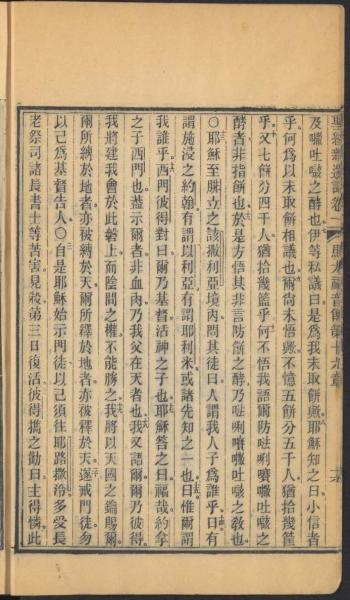 聖經新遺詔卷一 馬太福音傳第十六章
及𡄴吐噝之酵也伊等私議曰是爲我未取餅歟耶穌知之曰小信者
乎何爲以未取餅相議也爾尚未悟歟不憶五餅分五千人猶拾幾筐
乎又七餅分四千人猶拾幾籃乎何不悟我語爾防𠵽唎㘔𡄴吐噝之
酵者非指餅也於是方悟其非言防餅之酵乃𠵽唎㘔𡄴吐噝之敎也
○耶穌至腓立之該撒利亞境內問其徒曰人謂我人子爲誰乎曰有
謂施浸之約翰有謂以利亞有謂耶利米或諸先知之一也曰惟爾謂
我誰乎西門彼得對曰爾乃基督活神之子也耶穌答之曰福哉約拿
之子西門也葢示爾者非血肉乃我父在天者也我又語爾爾乃彼得
我將建我會於此磐上而陰間之權不能勝之我將以天國之鑰賜爾
爾所縛於地者亦被縛於天爾所釋於地者亦被釋於天遂戒門徒勿
以己爲基督告人○自是耶穌始示門徒以己須往耶路撒泠多受長
老祭司諸長書士等苦害見殺第三日復活彼得擕之勸曰主得憐此